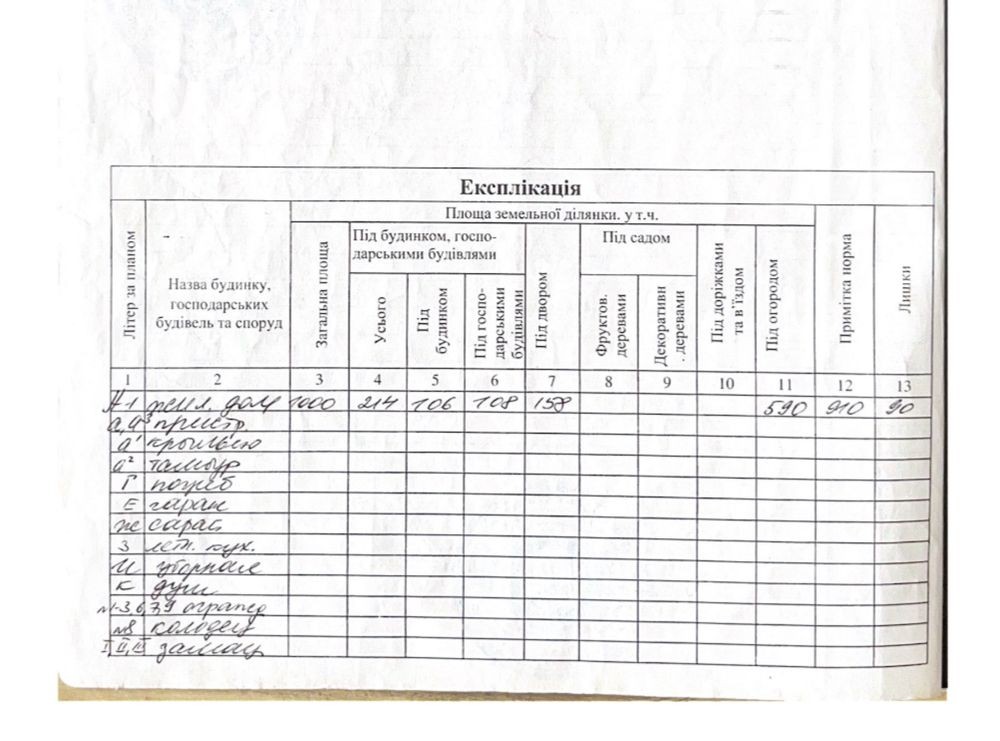 Експлікація
Площа земельної ділянки. у т.ч.
Літер за планом
Назва будинку,
господарських
будівель та споруд
Загальна площа
Під будинком, госпо-
дарськими будівлями
Усього
Під
будинком
Під госпо-
дарськими
будівлями
Під двором
Під садом
Фруктов.
деревами
Декоративн
. деревами
Під доріжками
та в’їздом
Під огородом
Примітка норма
Лишки
1 2 3 4 5 6 7 8 9 10 11 12 13
А-1 жил. дом 1000 214 106 108 158 590 910 90
а, а³ пристр.
а¹ крыльцо
а² тамбур
Г погреб
Е гараж
Ж сарай
З летн. кух.
И уборная
К душ
№1-3,6,7,9 огражд
№8 колодец
I, II, III замощ